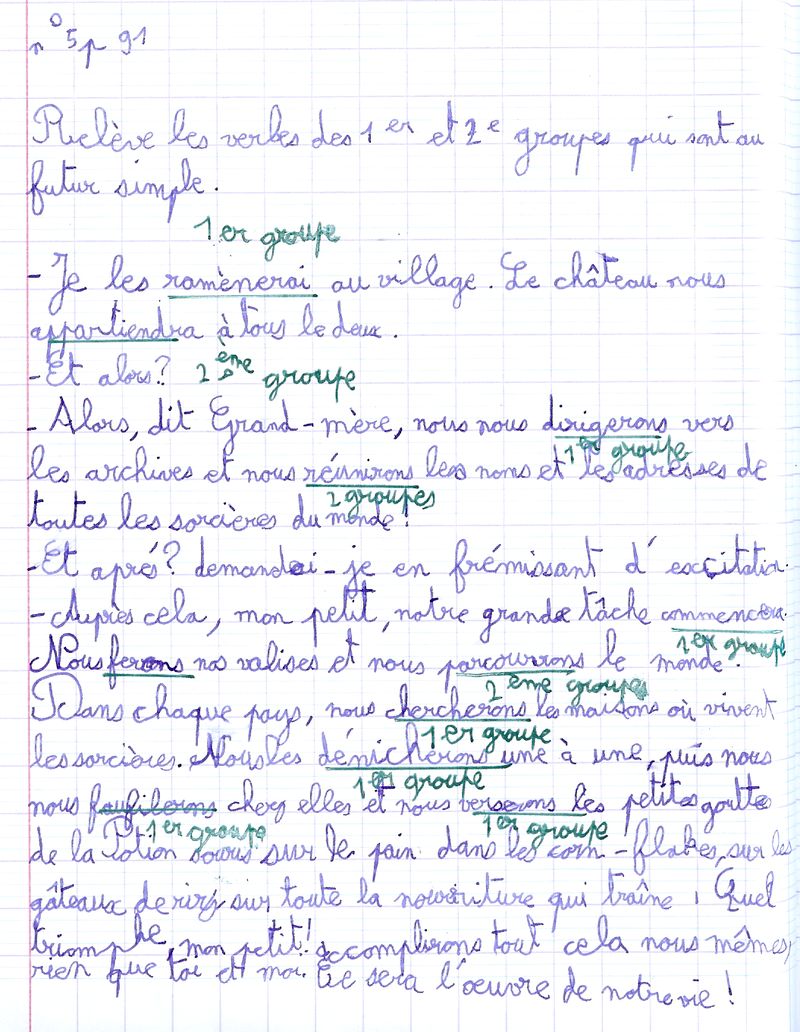 n° 5 p 91
Relève les verbes des 1er et 2e groupes qui sont au
futur simple.
1er groupe
- Je les ramènerai au village. Le château nous
appartiendra à tous le deux.
- Et alors? 2ème groupe
- Alors, dit Grand-mère, nous nous dirigerons vers
1er groupe
les archives et nous réunirons les noms et les adresses de
2 groupes
toutes les sorcières du monde!
- Et aprés? demandai-je en frémissant d'excitation.
- Après cela, mon petit, notre grande tâche commencera.
1er groupe
Nous ferons nos valises et nous parcourrons le monde.
2ème groupes
Dans chaque pays, nous chercherons les maisons où vivent
1er groupe
les sorcières. Nous les dénicherons une à une, puis nous
1er groupe
nous faufilerons chez elles et nous verserons les petites goutte
1er groupe 1er groupe
de la Potion souris sur le pain dans les corn-flakes, sur les
gâteaux de riz, sur toute la nourriture qui traîne. Quel
triomphe, mon petit! accomplirons tout cela nous mêmes,
rien que toi et moi. Ce sera l'œuvre de notre vie!